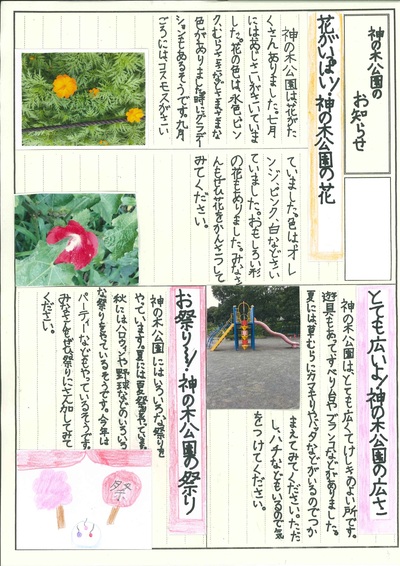 神の木公園の
お知らせ
花がいっぱい!神の木公園の花
神の木公園は、花がた
くさんありました。七月
にはあじさいがさいていま
した。花の色は、水色、ピン
ク、むらさきなどさまざまな
色がありました。時にグラデー
ションもあるそうです。九月
ごろにはコスモスがさい
ていました。色はオレ
ンジ、ピンク、白などさい
ていました。おもしろい形
の花もありました。みなさ
んもぜひ花をかんさつして
みてください。
とても広いよ!神の木公園の広さ
神の木公園は、とても広くてけしきのよい所です。
遊具もあって、すべり台やブランコなどがありました。
夏には、草むらにカマキリやバッタなどがいるのでつか
まえてみてください。ただ
し、ハチなどもいるので気
をつけてください。
お祭り!!神の木公園の祭り
神の木公園にはいろいろな祭りを
やっています。夏には夏祭り
秋にはハロウィンや野球などのいろいろ
な祭りをやっているそうです。今年は
パーティーなどもやっているそうです。
みなさんもぜひ祭りにさんかしてみて
ください。
祭